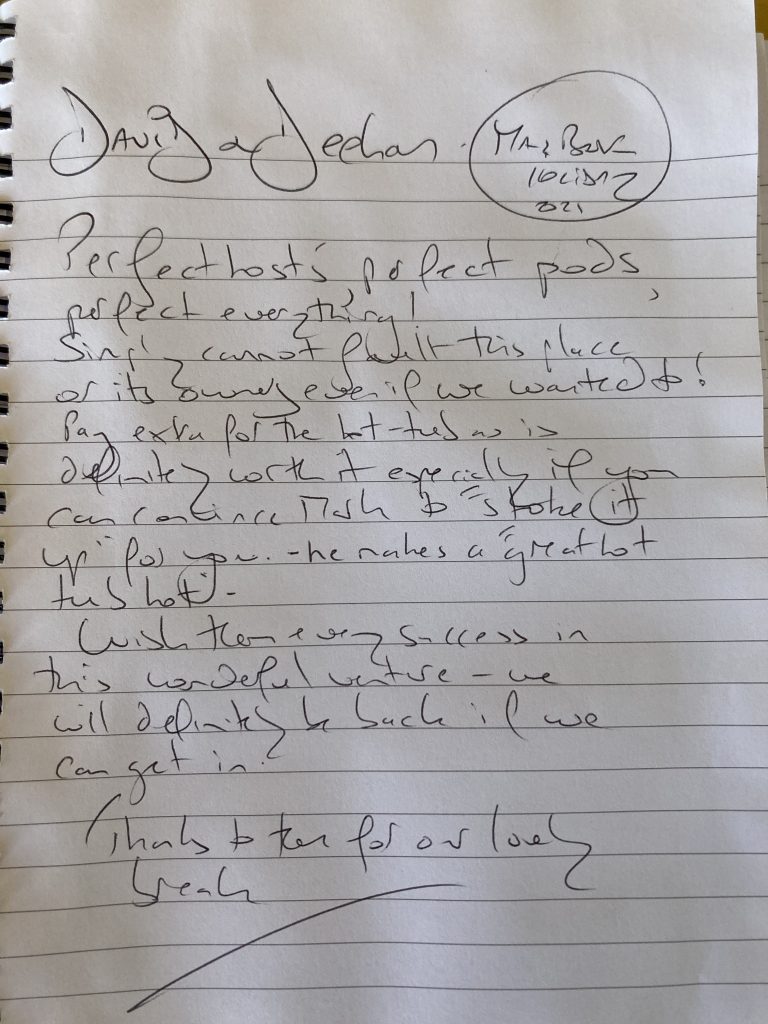 David & Jeehan. May Bank
Holiday
2021
Perfect hosts perfect pods,
perfect everything!
Simply cannot fault this place
or its owners even if we wanted to!
Pay extra for the hot-tub as is
definitely worth it especially if you
can convince to "stoke it
up" for you. - he makes a "great hot
tub hot" -
Wish them every success in
this wonderful venture - we
will definitely be back if we
can get in!
Thanks to them for our lovely
break